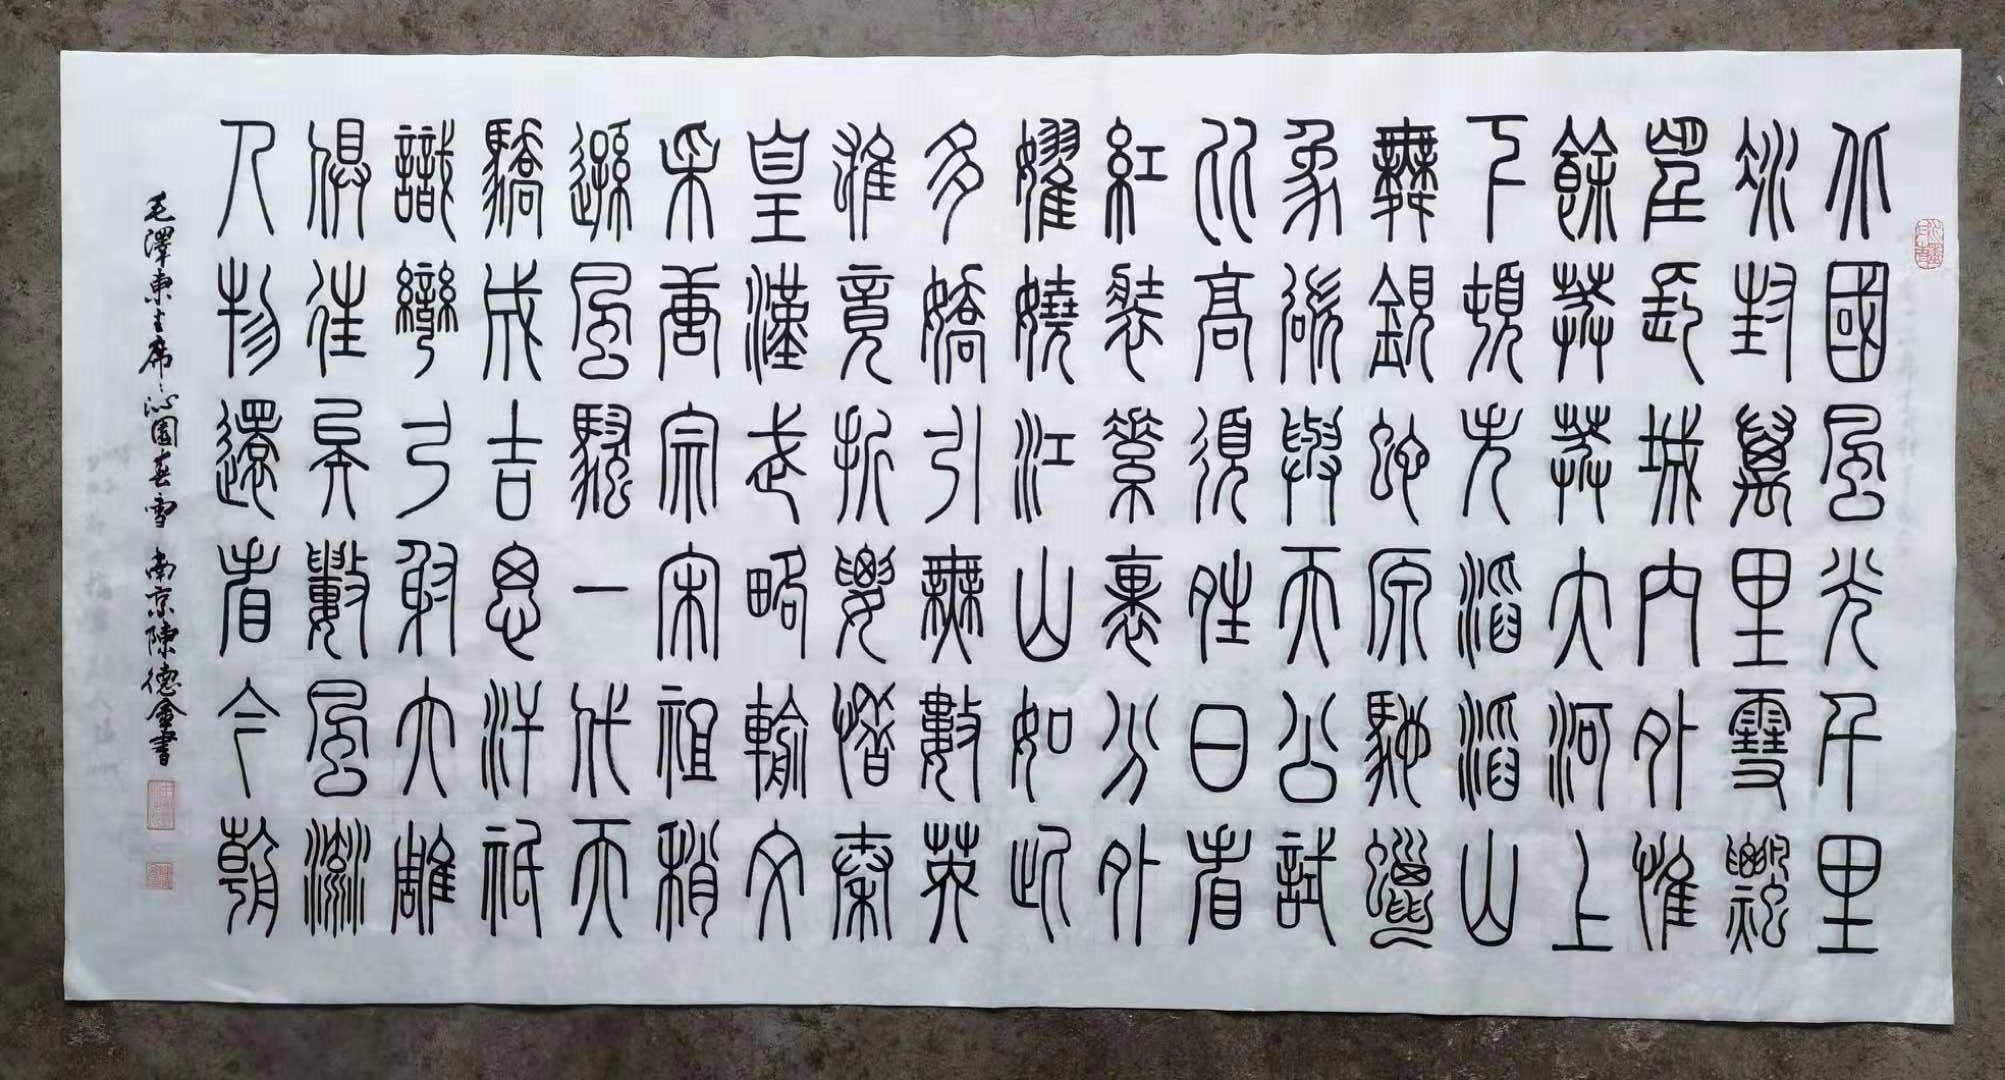 北國風光千里
冰封萬里雪飄
望長城內外惟
餘莽莽大河上
下頓失滔滔山
舞銀蛇原馳蠟
象欲與天公試
比高須晴日看
紅裝素裹分外
妖嬈江山如此
多嬌引無數英
雄競折腰惜秦
皇漢武略輸文
采唐宗宋祖稍
遜風騷一代天
驕成吉思汗祇
識彎弓射大雕
俱往矣數風流
人物還看今朝
毛澤東主席沁園春雪 南京陳德金書